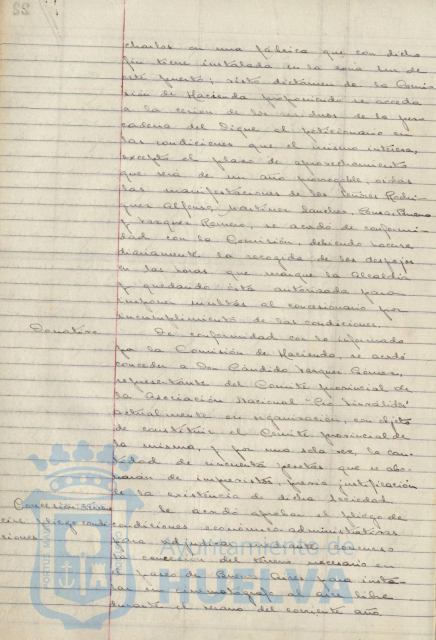 charlos en una fábrica que con dicho
fin tiene instalada en la zona Sur de
este puerto; visto dictámen de la Comi-
sión de Hacienda proponiendo se acceda
a la cesion de los residuos de la
cadena del Dique al peticionario en
las condiciones que el mismo interesa,
excepto el plazo de aprovechamiento
que será de un año prorrogable, oidas
las manifestaciones de los Señores Rodri-
guez Alfonso, Martinez Sanchez,
y Vazquez Romero, se acordó de conformi-
dad con la Comisión, debiendo hacerse
diariamente la recogida de los despojos
en las horas que marque la Alcaldía
y quedando ésta autorizada para
imponer multas al concesionario por
incumplimiento de las condiciones.
Donativo De conformidad con lo informado
por la Comisión de Hacienda, se acordó
conceder a Don Cándido Vazquez Gomez,
representante del Comité provincial de
la Asociación Nacional "Pro Inválidos"
actualmente en organización, con objeto
de constituir el Comité provincial de
la misma, y por una sola vez, la can-
tidad de cincuenta pesetas que se abo-
narán de imprevistos previa justificación
de la existencia de dicha Sociedad.
Se acordó aprobar el pliego de
Concesión
pliego condi- condiciones económico-administrativas
ciones para adjudicar mediante concurso
la concesion del terreno necesario en
el paseo de Buenos Aires para insta-
lar un cinematógrafo al aire libre
durante el verano del corriente año
Ayuntamiento de
HUELVA